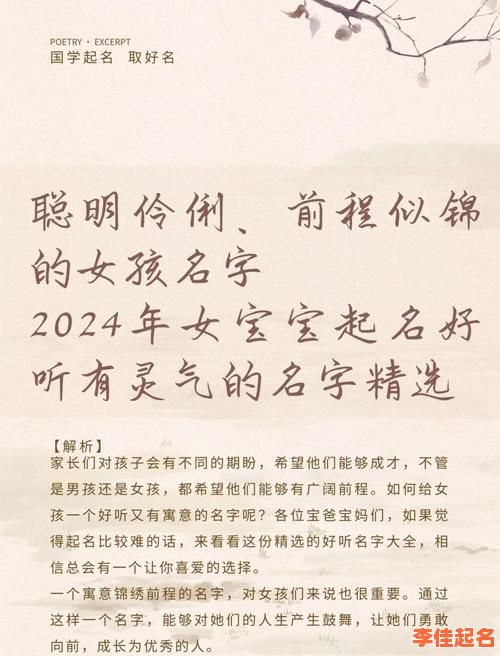 POETRY · EXCERPT
国学起名 取好名
聪明伶俐、前程似锦
的女孩名字
2024年女宝宝起名好
听有灵气的名字精选
【解析】
家长们对孩子会有不同的期盼，希望他们能够成才，不管
是男孩还是女孩，都希望他们能够有广阔前程。如何给女
孩一个好听又有寓意的名字呢？各位宝爸宝妈们，如果觉
得起名比较难的话，来看看这份精选的好听名字大全，相
信总会有一个让你喜爱的选择。
一个寓意锦绣前程的名字，对女孩们来说也很重要。通过
这样一个名字，能够对她们的人生产生鼓舞，让她们勇敢
向前，成长为优秀的人。
李佳起名